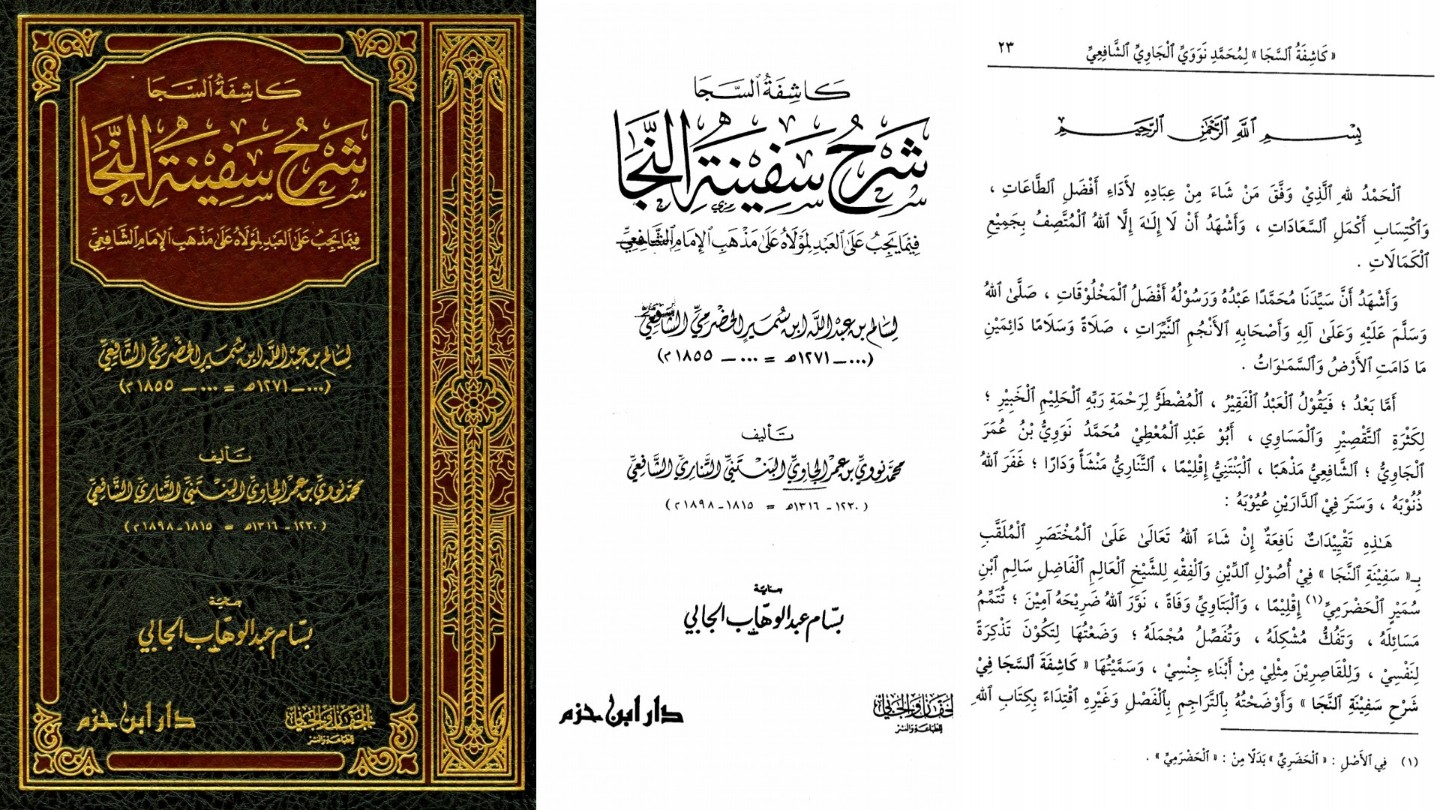 كاشفة السجا
شرح سفينة النجا
فيما يجب على العبد لمولاه على مذهب الإمام الشافعي
لسالم بن عبد الله ابن سمير الحضرمي الشافعي
(... – ١٢٧١هـ = ... – ١٨٥٥م)
تأليف
محمد نووي بن عمر الجاوي البنتني التناري الشافعي
(١٢٣٠ - ١٣١٦هـ = ١٨١٥ - ١٨٩٨م)
عناية
بسام عبد الوهاب الجابي
دار ابن حزم
الجفان والجابي
للطباعة والنشر
كاشفة السجا
شرح سفينة النجا
فيما يجب على العبد لمولاه على مذهب الإمام الشافعي
لسالم بن عبد الله ابن سمير الحضرمي الشافعي
(... – ١٢٧١هـ = ... – ١٨٥٥م)
تأليف
محمد نووي بن عمر الجاوي البنتني التناري الشافعي
(١٢٣٠ - ١٣١٦هـ = ١٨١٥ - ١٨٩٨م)
عناية
بسام عبد الوهاب الجابي
دار ابن حزم
الجفان والجابي
للطباعة والنشر
« كَاشِفَةُ ٱلسَّجَا » لِمُحَمَّد نَوَوِيِّ ٱلْجَاوِيِّ ٱلشَّافِعِيِّ ٢٣
بِسْمِ ٱللَّهِ ٱلرَّحْمَٰنِ ٱلرَّحِيمِ
ٱلْحَمْدُ للهِ ٱلَّذِيْ وَفَّقَ مَنْ شَاءَ مِنْ عِبَادِهِ لأَدَاءِ أَفْضَلِ ٱلطَّاعَاتِ ،
وَٱكْتِسَابِ أَكْمَلِ ٱلسَّعَادَاتِ ، وَأَشْهَدُ أَنْ لَا إِلَـٰهَ إِلَّا ٱللهُ ٱلْمُتَّصِفُ بِجَمِيْعِ
ٱلْكَمَالَاتِ .
وَأَشْهَدُ أَنَّ سَيِّدَنَا مُحَمَّدًا عَبْدُهُ وَرَسُوْلُهُ أَفْضَلُ ٱلْمَخْلُوْقَاتِ ، صَلَّىٰ ٱللهُ
وَسَلَّمَ عَلَيْهِ وَعَلَىٰ آلِهِ وَأَصْحَابِهِ ٱلْأَنْجُمِ ٱلنَّيِّرَاتِ ، صَلَاةً وَسَلَامًا دَائِمَيْنِ
مَا دَامَتِ ٱلْأَرْضُ وَٱلسَّمَـٰوَاتُ .
أَمَّا بَعْدُ ؛ فَيَقُوْلُ ٱلْعَبْدُ ٱلْفَقِيْرُ ، ٱلْمُضْطَرُّ لِرَحْمَةِ رَبِّهِ ٱلْحَلِيْمِ ٱلْخَبِيْرِ ؛
لِكَثْرَةِ ٱلتَّقْصِيْرِ وَٱلْمَسَاوِي ، أَبُوْ عَبْدِ ٱلْمُعْطِيْ مُحَمَّدُ نَوَوِيُّ بْنُ عُمَرَ
ٱلْجَاوِيُّ ؛ ٱلشَّافِعِيُّ مَذْهَبًا ، ٱلْبَنْتَنِيُّ إِقْلِيْمًا ، ٱلتَّنَارِيُّ مَنْشَأً وَدَارًا ؛ غَفَرَ ٱللهُ
ذُنُوْبَهُ ، وَسَتَرَ فِيْ ٱلدَّارَيْنِ عُيُوْبَهُ :
هَـٰذِهِ تَقْيِيْدَاتٌ نَافِعَةٌ إِنْ شَاءَ ٱللهُ تَعَالَىٰ عَلَىٰ ٱلْمُخْتَصَرِ ٱلْمُلَقَّبِ
بِـ« سَفِيْنَةِ ٱلنَّجَا » فِيْ أُصُوْلِ ٱلدِّيْنِ وَٱلْفِقْهِ لِلشَّيْخِ ٱلْعَالِمِ ٱلْفَاضِلِ سَالِمِ ٱبْنِ
سُمَيْرِ ٱلْحَضْرَمِيِّ(١) إِقْلِيْمًا ، وَٱلْبَتَاوِيِّ وَفَاةً ، نَوَّرَ ٱللهُ ضَرِيْحَهُ آمِيْنَ ؛ تُتَمِّمُ
مَسَائِلَهُ ، وَتَفُكُّ مُشْكِلَهُ ، وَتُفَصِّلُ مُجْمَلَهُ ؛ وَضَعْتُهَا لِتَكُوْنَ تَذْكِرَةً
لِنَفْسِيْ ، وَلِلْقَاصِرِيْنَ مِثْلِيْ مِنْ أَبْنَاءِ جِنْسِيْ ، وَسَمَّيْتُهَا « كَاشِفَةَ ٱلسَّجَا فِيْ
شَرْحِ سَفِيْنَةِ ٱلنَّجَا » وَأَوْضَحْتُهُ بِٱلتَّرَاجِمِ بِٱلْفَصْلِ وَغَيْرِهِ ٱقْتِدَاءً بِكِتَابِ ٱللهِ
(١) فِيْ ٱلْأَصْلِ : « ٱلْحَضَرِيِّ » بَدَلًا مِنْ : « ٱلْحَضْرَمِيِّ » .